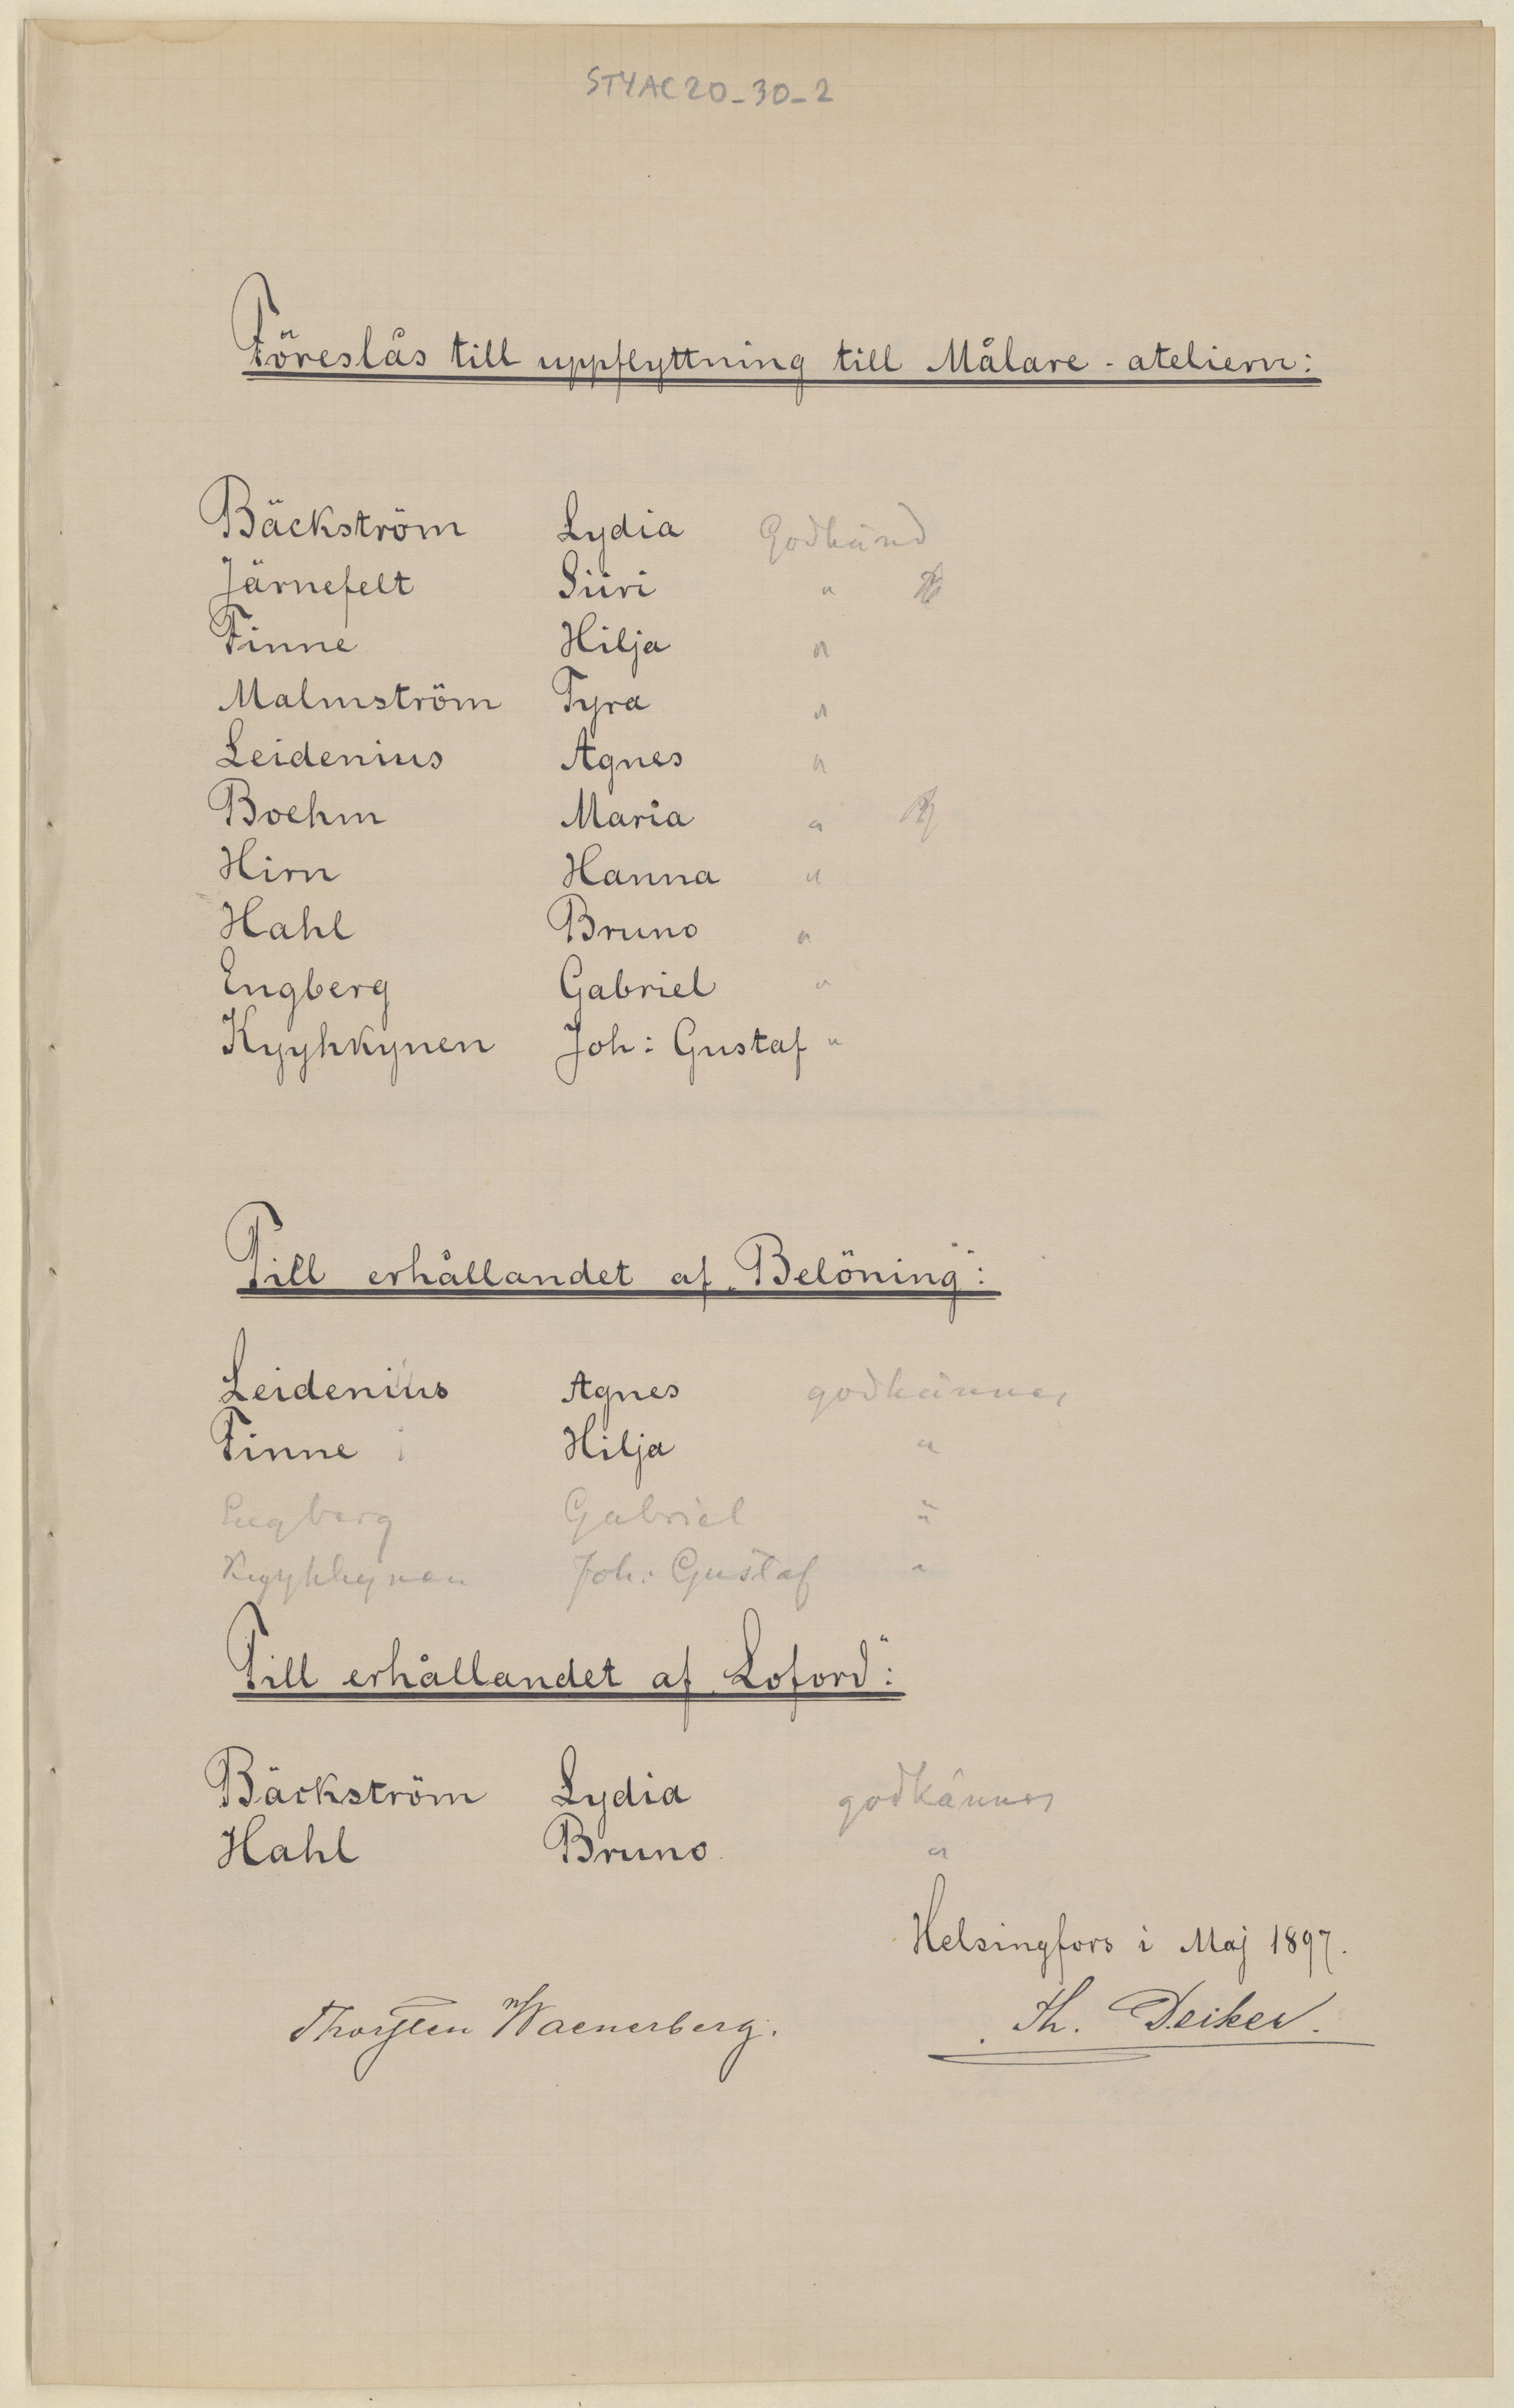 STYAC20_30_2
Föreslås till uppflyttning till Målare-ateliern:
Bäckström Lydia Godkänd
Järnefelt Siiri "
Finne Hilja "
Malmström Tyra "
Leidenius Agnes "
Boehm Maria "
Hirn Hanna "
Hahl Bruno "
Engberg Gabriel "
Kyyhkynen Joh: Gustaf "
Till erhållandet af „Belöning":
Leidenius Agnes godkännes
Finne Hilja "
Engberg Gabriel "
Kyyhkynen Joh: Gustaf "
Till erhållandet af „Loford":
Bäckström Lydia godkännes
Hahl Bruno "
Helsingfors i Maj 1897.
Thorsten Waenerberg. Th. Decker.